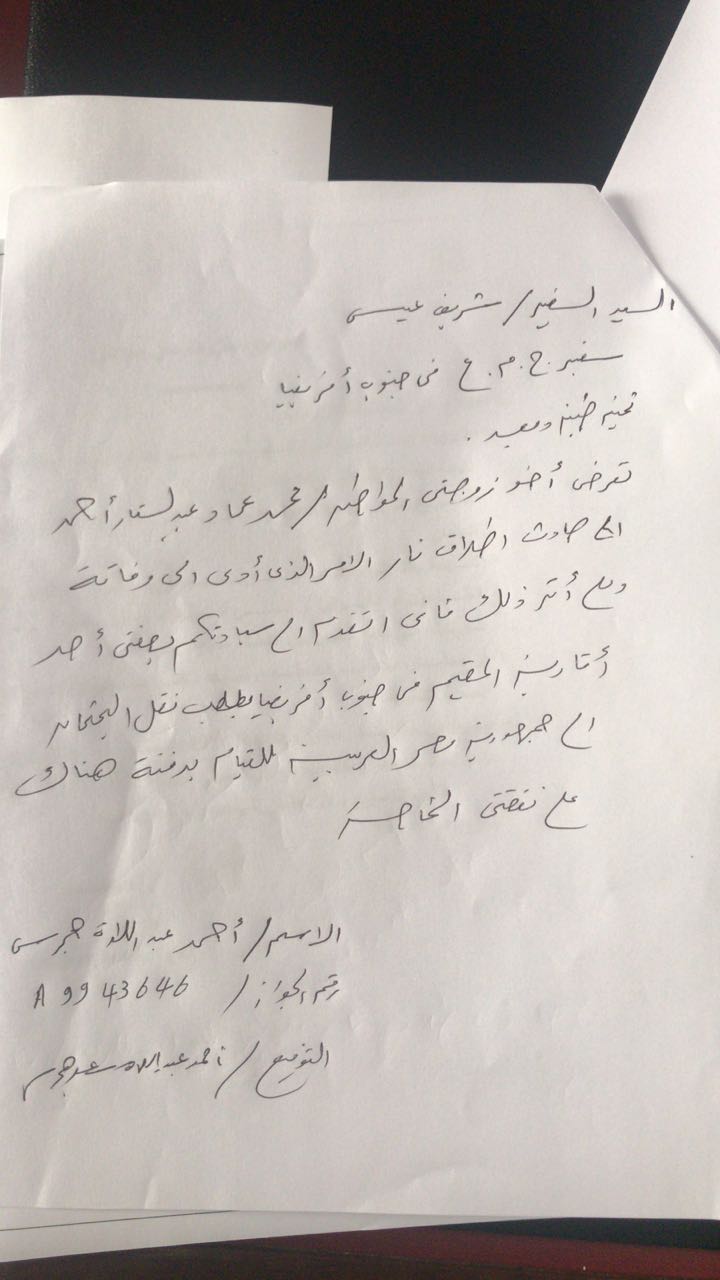 السيد السفير / شريف عيسى
سفير ج.م.ع فى جنوب أفريقيا
تحية طيبة وبعد .
تعرض أخو زوجتى المواطن / محمد عماد عبد الستار أحمد
الى حادث اطلاق نار الامر الذى أدى الى وفاتة
وعلى أثر ذلك فانى اتقدم الى سيادتكم بصفتى أحد
أقاربة المقيم فى جنوب أفريقيا بطلب نقل الجثمان
الى جمهورية مصر العربية للقيام بدفنة هناك
على نفقتى الخاصة
الاسم / أحمد عبد اللاة
رقم الجواز / A 9943646
التوقيع / أحمد عبد اللاة سعد